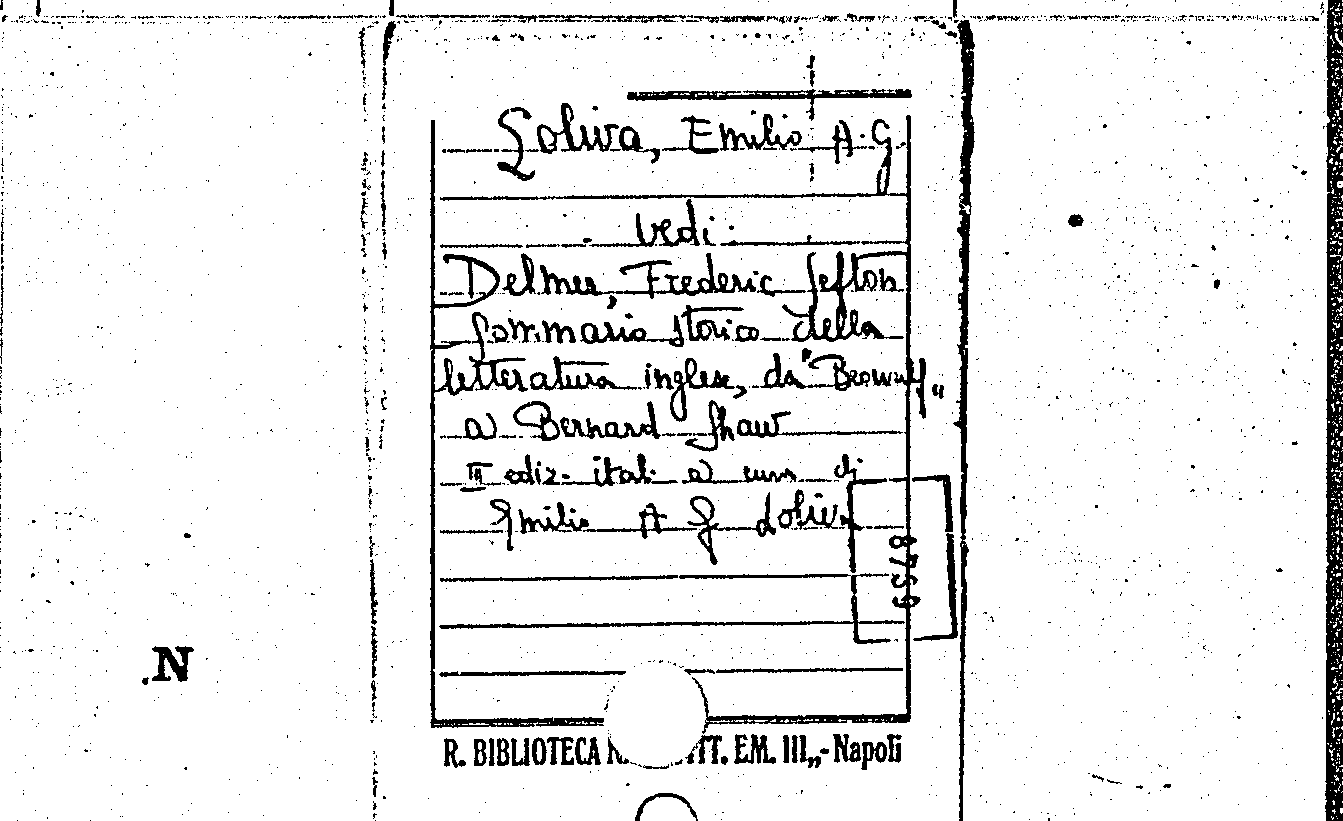 Soliva, Emilio A. G.
Vedi:
Delmer, Frederic Sefton
Sommario storico della
letteratura inglese, da "Beowulf"
a Bernard Shaw
III ediz. ital. a cura di
Emilio A G Soliva
8759
N
R. BIBLIOTECA N. VITT. EM. III„- Napoli